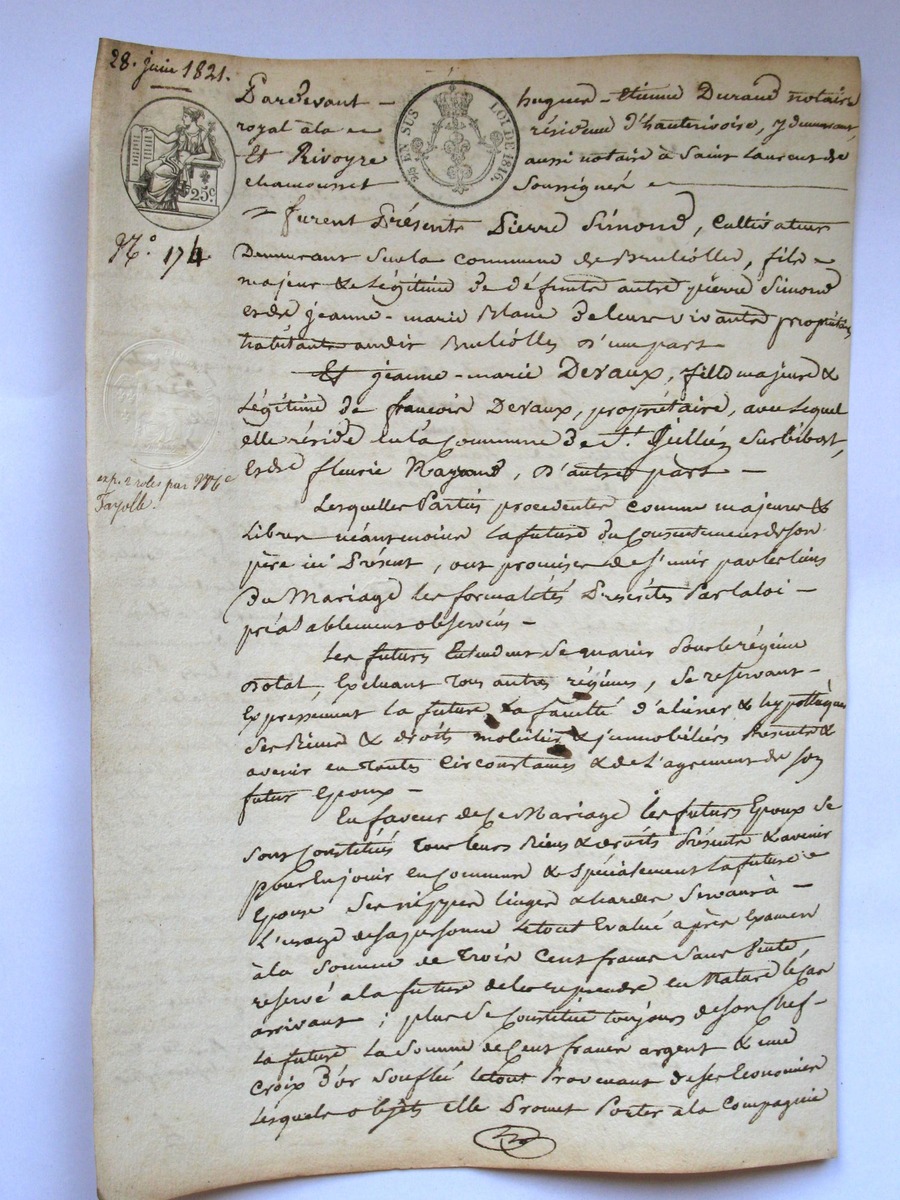 28. juin 1821.
Pardevant - hugues - Etienne Durand notaire
royal à la résidence d'hauterivoire, y demeurant,
Et Rivoyre aussi notaire à Saint Laurent de
chamousset Soussignés
EN SUS LOI DE 1816.
25c.
furent Présents Pierre Simond, Cultivateur
N.o 174
Demeurant Sur la commune de Bruliolles, fils
majeur & Légitime de défunts autre pierre Simond
et de jeanne-marie Blanc de leur vivants propriétes
habitants audit Brulliolles d'une part
Et jeanne-marie Devaux, fille majeure &
Légitime de françois Devaux, propriétaire, avec Lequel
elle réside en la Commune de St. Jullien Sur bibost,
et de fleurie d'autre part -
exp. 2 roles par Me
Fayolle.
Lesquelles Parties procedentes comme majeures &
Libres néantmoins la future du Consentement de son
père ici Présent, ont promises de s'unir par les liens
du Mariage les formalités Prescrites Par la loi -
préalablement observées -
Les futurs Entendent se marier Sous le régime
dotal, Excluant tous autres régimes, se reservant -
Expressement la future La faculté d'aliener & hypothèquer
Ses Biens & droits mobiliers & jmmobiliers Presents &
avenir en toutes Circonstances & de L'agrement de son
futur Epoux -
En faveur de Ce Mariage les futurs Epoux se
sont Constitués Tous leurs Biens & droits Présents & avenir
pour En jouir en Commun & Spécialement la future
Epouse Ses nippes linges & hardes Servant à -
L'usage de sa personne Le tout Evalué après Examen
à la Somme de Trois Cent francs Sans Vente,
reservé a la future de les reprendre en Nature le Cas
arrivant ; plus Se Constitue toujours de Son Chef -
La future La Somme de Cent francs argent & une
Croix D'or Souflée le tout Provenant de ses Economies
Lesquels objets elle Promet Porter à la Compagnie